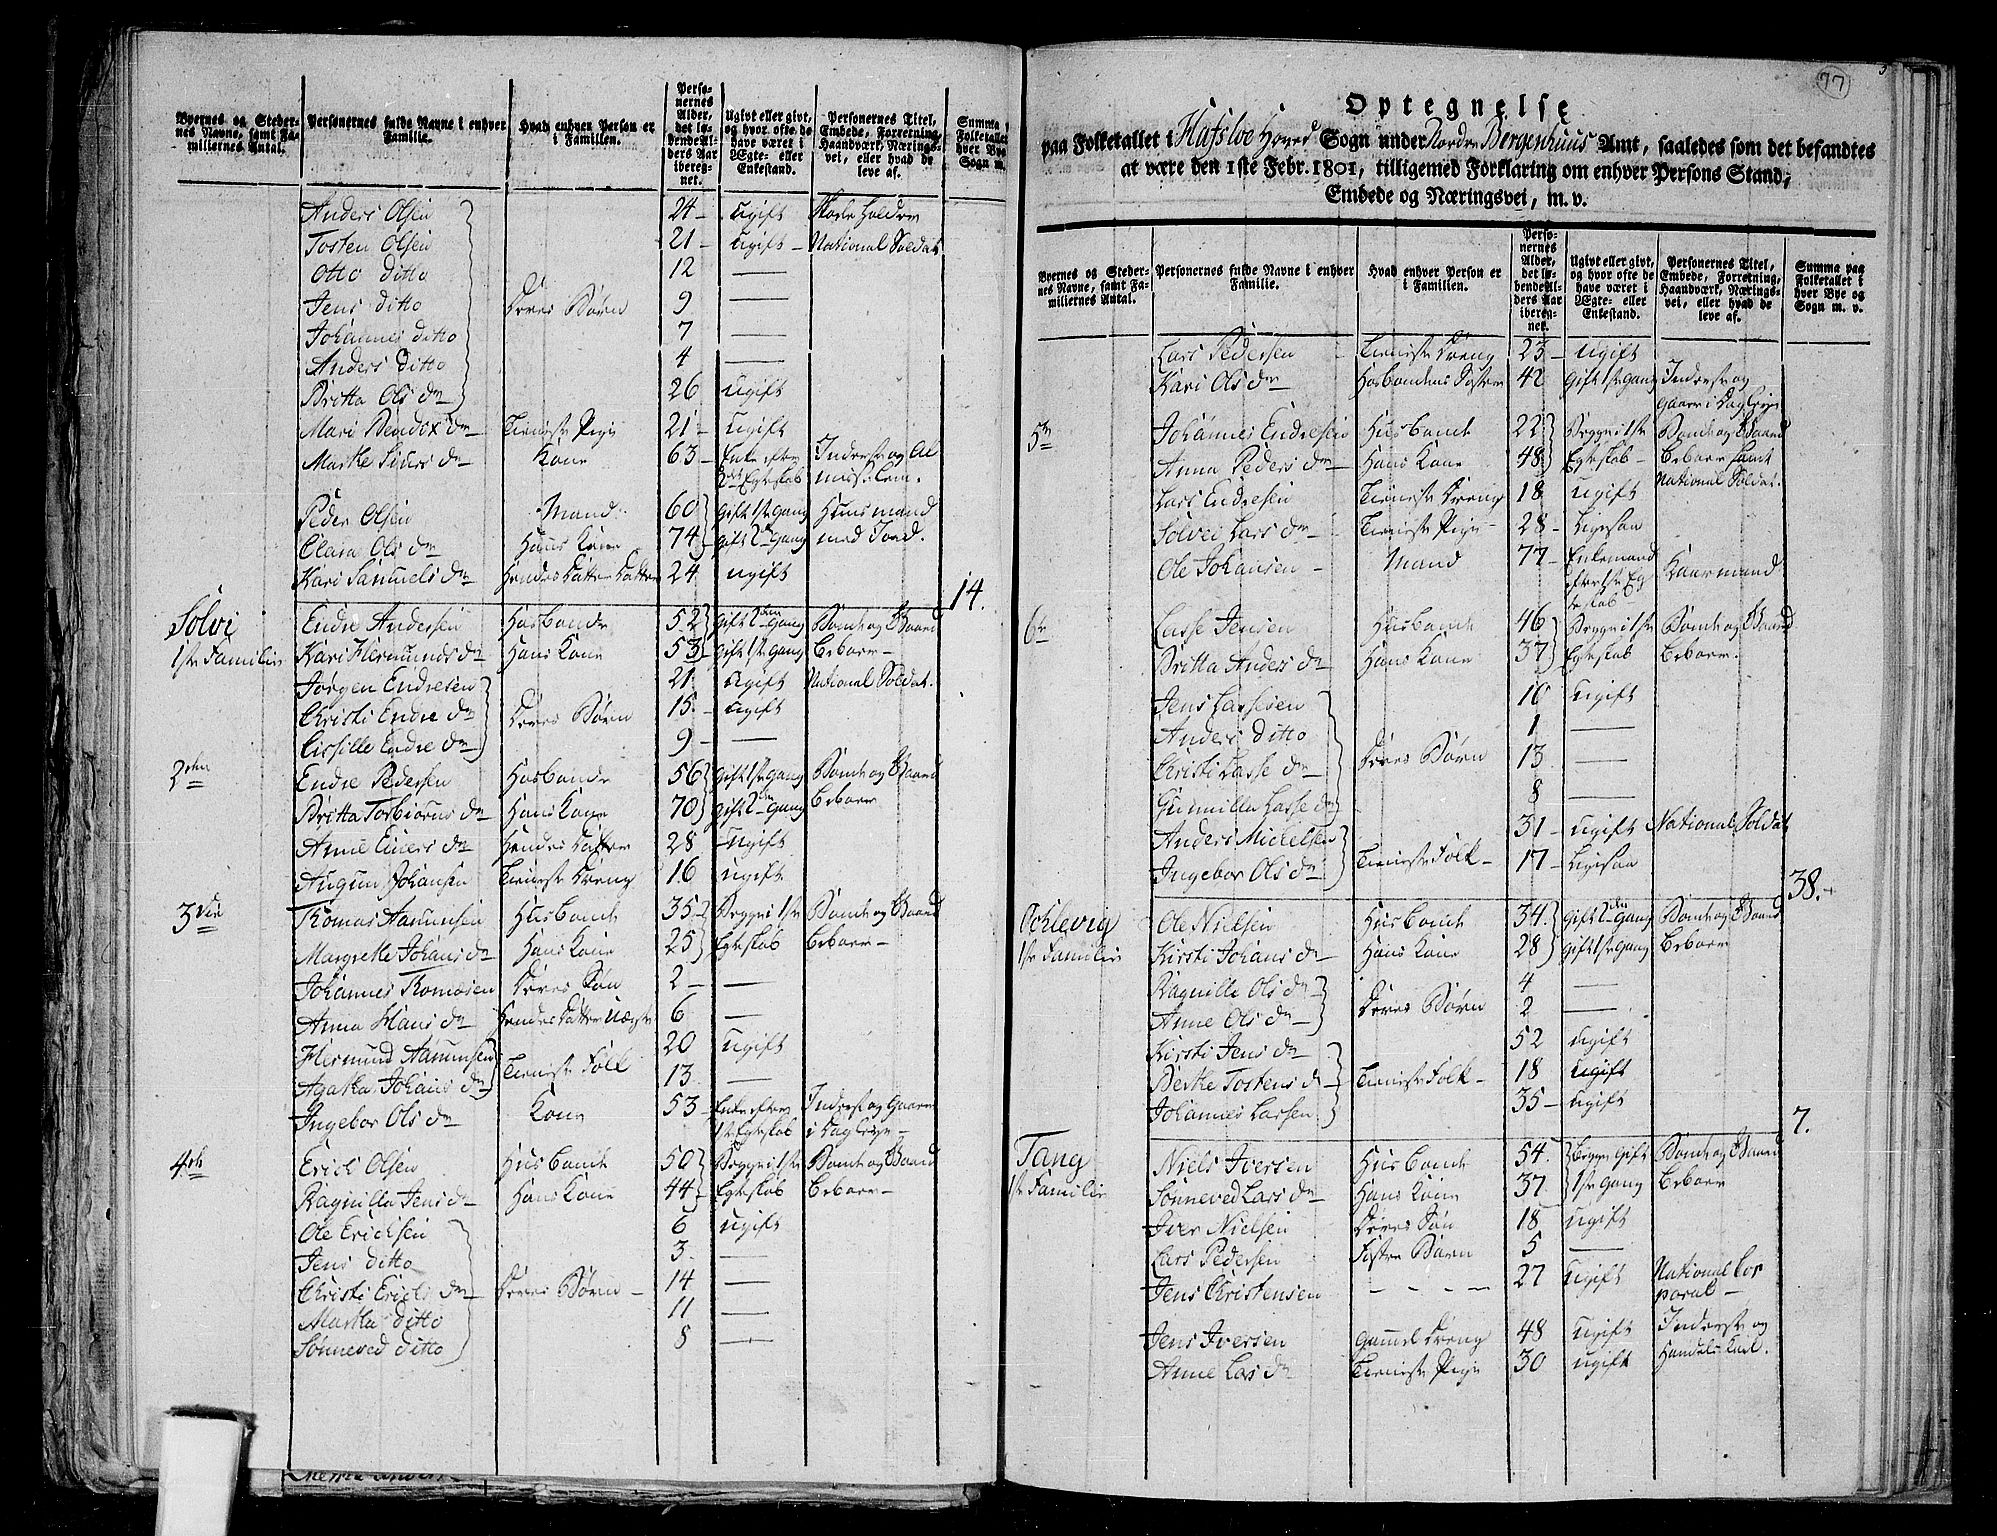 Byernes og Stedernes Navne, samt Familiernes Antal.
Personernes fulde Navne i enhver Familie.
Hvad enhver Person er i Familien.
Personernes Alder, det løbende Alders Aar iberegnet.
Ugivt eller givt, og hvor ofte de have været i Ægte- eller Enkestand.
Personernes Titel, Embede, Forretning, Haandværk, Næringsvei, eller hvad de leve af.
Summa Folketallet hver Bye Sogn m.
Anders Olsen 24 - ugift
Tosten Olsen 21 - ugift - National Soldat
Otto ditto 12 —
Jens ditto Deres Børn 9 —
Johannes ditto 7 —
Anders ditto 4 —
Britta Ols dr 26 ugift
Mari Bendix dr Tieneste Pige 21 - ugift
Marthe Siurs dr Kone 63 - Enke efter 2det Egteskab Inderste og Almisselem.
Peder Olsen Mand. 60 gift 1ste gang Huusmand
Clara Ols dr Hans Kone 74 gift 2den gang med Jord.
Kari Samuels dr Hendes Datter Datter 24 ugift
14.
Solvi Endre Andersen Hosbonde 52 gift 2den gang Bonde og Gaard
1ste Familie Kari Hermunds dr Hans Kone 53 gift 1ste gang Beboer -
Jørgen Endresen 21 ugift National Soldat.
Christi Endre dr Deres Børn 15 - ugift
Cissille Endre dr 9 - —
2den Endre Pedersen Hosbonde 56 gift 1ste gang Bonde og Gaard
Britta Torbiørns dr Hans Kone 70 gift 2den gang Beboer
Anne Eners dr Hendes Datter 28 - ugift
Augun Johansen Tieneste Dreng 16 ugift
3die Thomas Aamunsen Husbonde 35 - Begge i 1ste Bonde og Gaard
Margrethe Johans dr Hans Kone 25 Egteskab Beboer -
Johannes Thomæsen Deres Søn 2 - —
Anna Hans dr Hendes Datter Uægte 6 —
Hermund Aamunsen Tieneste Folk 20 ugift
Agatha Johans dr 13 —
Ingebor Ols dr Kone 53 - Enke efter 1ste Egteskab Inderste og Gaaer i Dagleye -
4de Erich Olsen Husbonde 50 Begge i 1ste Bonde og Gaard
Ragnilla Jens dr Hans Kone 44 Egteskab Beboer -
Ole Erichsen 6 ugift
Jens ditto 3 —
Christi Erichs dr Deres Børn - 14 —
Martha ditto 11 —
Sønneved ditto 8 —
77
Optegnelse
paa Folketallet i Hafsloe Hoved Sogn under Nordre Bergenhuus Amt, saaledes som det befandtes
at være den 1ste Febr. 1801, tilligemed Forklaring om enhver Persons Stand,
Embede og Næringsvei, m. v.
Byernes og Stedernes Navne, samt Familiernes Antal.
Personernes fulde Navne i enhver Familie.
Hvad enhver Person er i Familien.
Personernes Alder, det løbende Alders Aar iberegnet.
Ugivt eller givt, og hvor ofte de have været i Ægte- eller Enkestand.
Personernes Titel, Embede, Forretning, Haandværk, Næringsvei, eller hvad de leve af.
Summa paa Folketallet i hver Bye og Sogn m. v.
Lars Pedersen Tieneste Dreng 23 - ugift
Kari Ols dr Hosbondens Søster 42 gift 1ste gang Inderste og gaaer i Dagleye
5te Johannes Endresen Husbonde 22 Begge i 1ste Bonde og Gaard
Anna Peders dr Hans Kone 48 Egteskab - Beboer samt National Soldat.
Lars Endresen Tieneste Dreng 18 ugift
Solvei Lars dr Tieneste Pige - 28 - Ligesaa
Ole Johansen - Mand 77 - Enkemand efter 1ste Egteskab - Kaarmand
6te Lasse Jensen Husbonde 46 Begge i 1ste Bonde og Gaard
Britta Anders dr Hans Kone 37 Egteskab Beboer.
Jens Lassesen 16 ugift
Anders ditto 1 —
Christi Lasse dr Deres Børn 13 —
Gunnilla Lasse dr 8 —
Anders Michelsen Tieneste Folk - 31 - ugift National Soldat
Ingebor Ols dr 17 - Ligesaa
38.
Ole Nielsen Husbonde 34 gift 2den gang Bonde og Gaard
1ste Familie Kirsti Johans dr Hans Kone 28 gift 1ste gang Beboer
Ragnille Ols dr Deres Børn 4 —
Anne Ols dr 2 —
Kirsti Jens dr 52 ugift
Berthe Tostens dr Tieneste Folk - 18 ugift
Johannes Larsen 35 - ugift
7.
Tang Niels Iversen Husbonde 54 Begge gift Bonde og Gaard
1ste Familie Sønneved Lars dr Hans Kone 37 1ste gang Beboer
Iver Nielsen Deres Søn 18 ugift
Lars Pedersen Foster Barn 5 —
Jens Christensen - - - - 27 ugift National Corporal -
Jens Iversen Gammel Dreng 48 ugift Inderste og
Anne Lars dr Tieneste Pige 30 ugift Handels Karl.